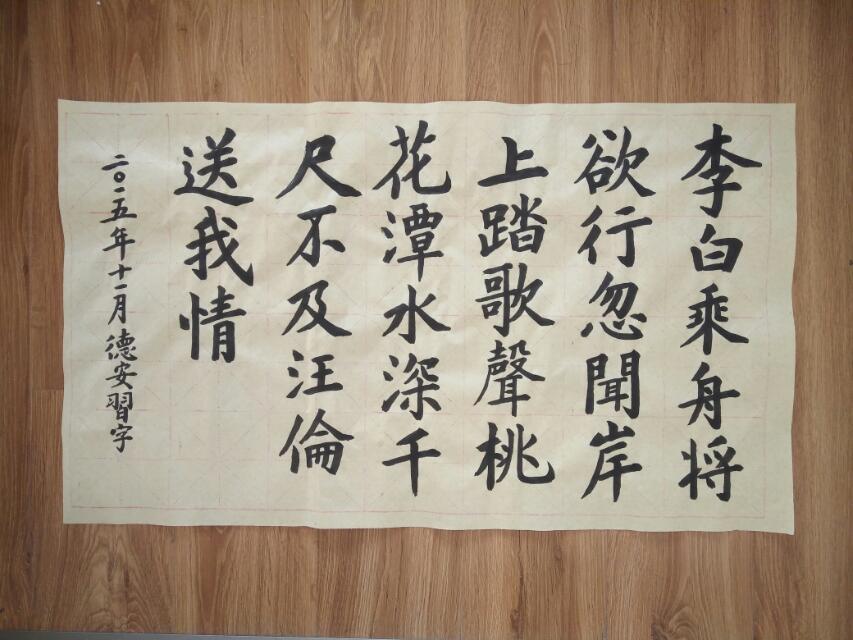 李白乘舟将
欲行忽聞岸
上踏歌聲桃
花潭水深千
尺不及汪倫
送我情
二〇一五年十一月德安習字